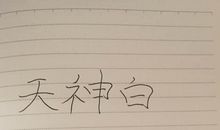 天神白